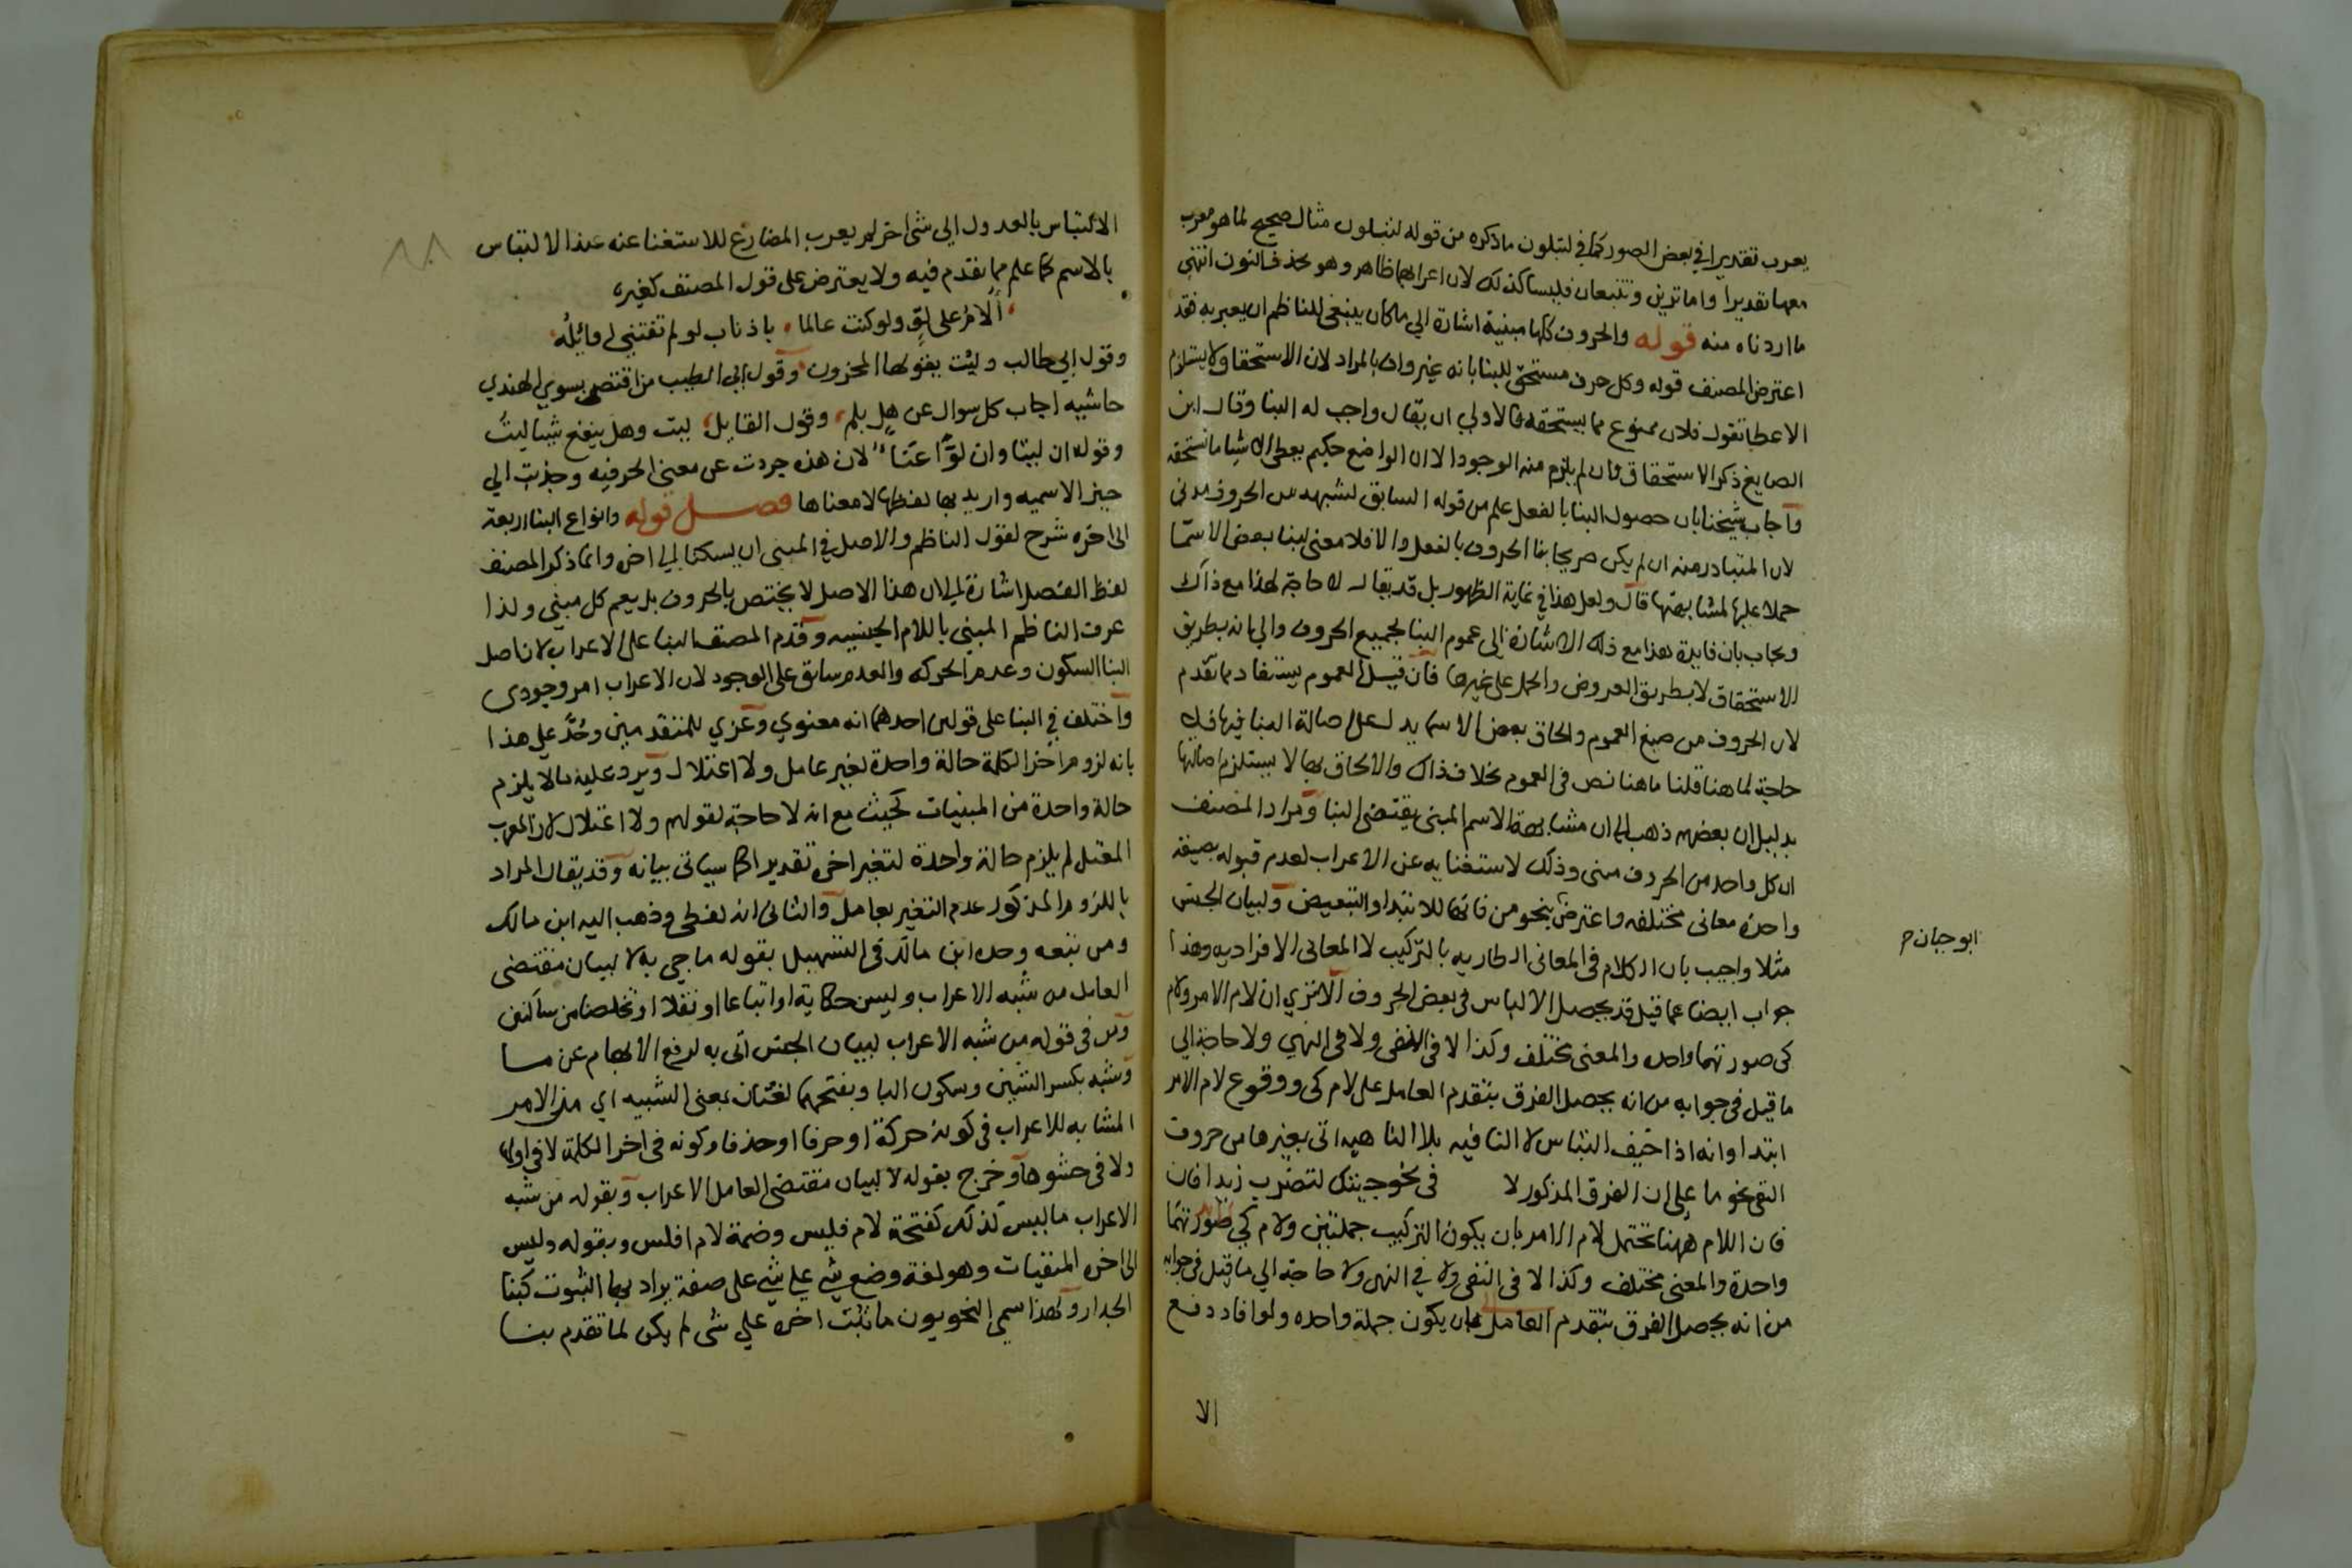 يعرب تقديرا في بعض الصور كما في لتبلون ما ذكره من قوله لتبلون مثال صحيح لما هو معرب
معها تقديرا واما ترين وتتبعان فليسا كذلك لان اعرابهما ظاهر وهو بحذف النون انتهى
ما اردناه منه قوله والحروف كلها مبنية اشارة الي ما كان ينبغي للناظم ان يعبر به فقد
اعترض المصنف قوله وكل حرف مستحق للبنا بانه غير واف بالمراد لان الاستحقاق لا يستلزم
الاعطا تقول فلان ممنوع مما يستحقه فالاولي ان يقال واجب له البنا وقال ابن
الصايغ ذكر الاستحقاق وان لم يلزم منه الوجود الا ان الواضع حكيم يعطي الاشيا ما تستحقه
واجاب شيخنا بان حصول البنا بالفعل علم من قوله السابق لشبه من الحروف مدني
لان المتبادر منه ان لم يكن صريحا بنا الحروف بالفعل والا فلا معنى لبنا بعض الاسما
حملا عليها لمشابهتها قال ولعل هذا في غاية الظهور بل قد يقال لا حاجة لهذا مع ذاك
ويجاب بان فايدة هذا مع ذلك الاشارة الى عموم البنا لجميع الحروف والي انه بطريق
الاستحقاق لا بطريق العروض والحمل على غيرها فان قيل العموم يستفاد مما تقدم
لان الحروف من صيغ العموم والحاق بعض الاسما يدل على اصالة البنا فيها فلا
حاجة لما هنا قلنا ما هنا نص في العموم بخلاف ذاك والالحاق بها لا يستلزم اصالتها
بدليل ان بعضهم ذهب الي ان مشابهة الاسم المبنى يقتضى البنا ومراد المصنف
ان كل واحد من الحروف مبنى وذلك لاستغنايه عن الاعراب لعدم قبوله بصيغة
واحدة معاني مختلفه واعترض بنحو من فانها للابتدا والتبعيض ولبيان الجنس
ابو حيان م
مثلا واجيب بان الكلام في المعاني الطاريه بالتركيب لا المعاني الافراديه وهذا
جواب ايضا عما قيل قد يحصل الالباس في بعض الحروف الا تري ان لام الامر ولام
كي صورتهما واحده والمعنى مختلف وكذا لا في النفي ولا في النهي ولا حاجة الي
ما قيل في جوابه من انه يحصل الفرق بتقدم العامل على لام كي ووقوع لام الامر
ابتدا وانه اذا خيف التباس لا النافيه بلا الناهيه اتى بغيرها من حروف
النفي نحو ما على ان الفرق المذكور لا في نحو جيتك لتضرب زيدا فان
فان اللام ههنا تحتمل لام الامر بان يكون التركيب جملتين ولام كي صورتهما
واحدة والمعنى مختلف وكذا لا في النفي ولا في النهى ولا حاجة الي ما قيل في جوابه
من انه يحصل الفرق بتقدم العامل بان يكون جملة واحده ولو افاد دفع
الا
الالتباس بالعدول الي شئ اخر لم يعرب المضارع للاستغنا عنه عند الالتباس
بالاسم كما علم مما تقدم فيه ولا يعترض على قول المصنف كغيره
ألام على لو ولو كنت عالما باذناب لو لم تفتني اوائله
وقول ابي طالب وليت يقولها المحزون وقول ابي الطيب من اقتضى بسوي الهندي
حاشيه اجاب كل سوال عن هل بلم وقول القايل ليت وهل ينفع شيا ليت
وقوله ان ليتا وان لوا عنا لان هذه جردت عن معنى الحرفيه وجذبت الي
حيز الاسميه واريد بها لفظها لا معناها فصل قوله وانواع البنا اربعة
الى اخره شرح لقول الناظم والاصل في المبنى ان يسكنا الي اخره وانما ذكر المصنف
لفظ الفصل اشارة الي ان هذا الاصل لا يختص بالحروف بل يعم كل مبني ولذا
عرف الناظم المبني باللام الجنسيه وقدم المصنف البنا على الاعراب لان اصل
البنا السكون وعدم الحركه والعدم سابق على الوجود لان الاعراب امر وجودي
واختلف في البنا على قولين احدهما انه معنوي وعزي للمتقدمين وحد على هذا
بانه لزوم اخر الكلمة حالة واحدة لغير عامل ولا اعتلال ويرد عليه ما لا يلزم
حالة واحدة من المبنيات كحيث مع انه لا حاجة لقولهم ولا اعتلال لان المعرب
المعتل لم يلزم حالة واحدة لتغير اخره تقديرا كما سياتي بيانه وقد يقال المراد
باللزوم المذكور عدم التغير بعامل والثاني انه لفظي وذهب اليه ابن مالك
ومن تبعه وحده ابن مالك في التسهيل بقوله ما جي به لا لبيان مقتضى
العامل من شبه الاعراب وليس حكاية او اتباعا او نقلا او تخلصا من ساكنين
ومن في قوله من شبه الاعراب لبيان الجنس اتى به لرفع الابهام عن ما
وشبه بكسر الشين وسكون البا وبفتحهما لغتان بمعنى الشبيه اي من الامر
المشابه للاعراب في كونه حركة او حرفا او حذفا وكونه في اخر الكلمة لا في اولها
ولا في حشوها وخرج بقوله لا لبيان مقتضى العامل الاعراب وبقوله من شبه
الاعراب ما ليس كذلك كفتحة لام فليس وضمة لام افلس وبقوله وليس
الى اخره المنفيات وهو لغة وضع شي على شي على صفة يراد بها الثبوت كبنا
الجدار ولهذا سمي النحويون ما ثبت اخره على شي لم يكن لما تقدم بنا